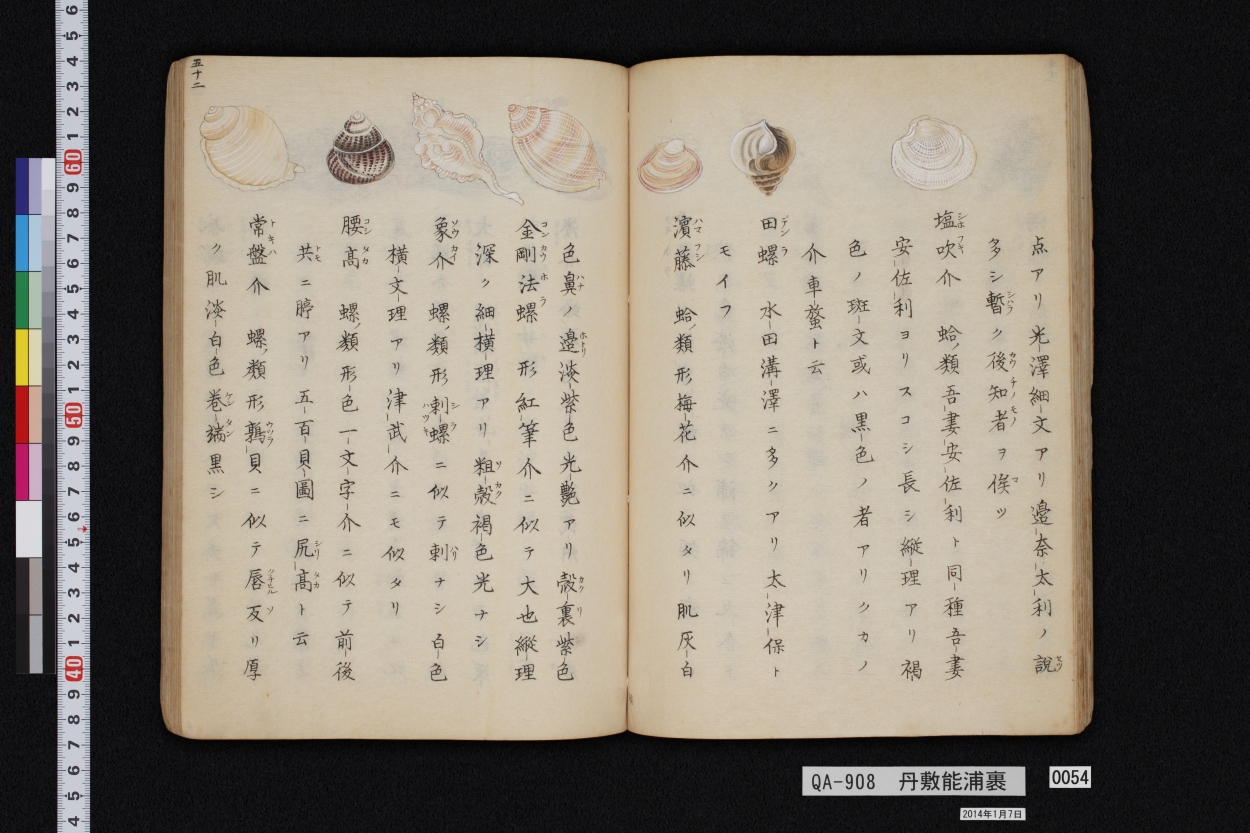 点アリ光澤細文アリ邉奈太利ノ説
多シ暫ク後知者ヲ俟ツ
塩吹介 蛤ノ類吾妻安佐利ト同種吾妻
安佐利ヨリスコシ長シ縦理アリ褐
色ノ斑文或ハ黒色ノ者アリクカノ
介車螯ト云
田螺 水田溝澤ニ多クアリ太津保ト
モイフ
濱藤 蛤ノ類形梅花介ニ似タリ肌灰白
色鼻ノ邉淡紫色光艶アリ殻裏紫色
金剛法螺 形紅筆介ニ似テ大也縦理
深ク細横理アリ粗殻褐色光ナシ
象介 螺ノ類形刺螺ニ似テ刺ナシ白色
横文理アリ津武介ニモ似タリ
腰髙 螺ノ類形色一文字介ニ似テ前後
共ニ臍アリ五百貝圖ニ尻髙ト云
常盤介 螺ノ類形鶉貝ニ似テ唇反リ厚
ク肌淡白色巻端黒シ
五十二
QA-908 丹敷能浦裹
0054
2014年1月7日